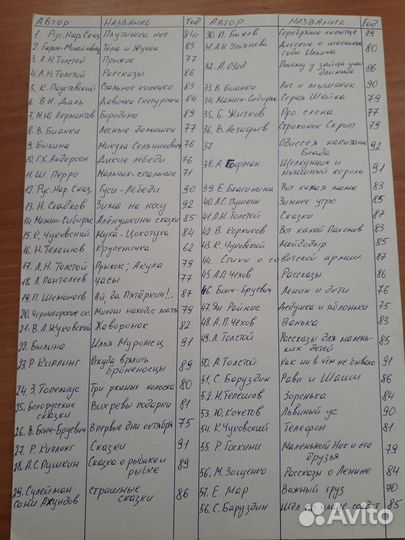 АВТОР НАЗВАНИЕ Год
1. Рус. Нар. Сказ. Плутишка кот 84г
2. Гарин-Михайловск Тёма и Жучка 85
3. Л.Н. Толстой Прыжок 77
4. Л.Н. Толстой Рассказы 86
5. К. Паустовский Стальное колечко 83
6. В.И. Даль Девочка Снегурочка 84
7. М.Ю. Лермонтов Бородино 89
8. В. Бианки Лесные домишки 77
9. Былина Микула Селянинович 76
10. Г.Х. Андерсен Дикие лебеди 76
11. Ш. Перро Мальчик-спальчик 71
12. Рус. Нар. Сказ. Гуси-Лебеди 90
13. Н. Сладков Зима на носу 92
14. Мамин-Сибиряк Алёнушкины сказки 85
15. К. Чуковский Муха-Цокотуха 84
16. Н. Телешов Крупеничка 62
17. Л.Н. Толстой Прыжок; Акула 79
18. Л. Пантелеев Часы 77
19. П. Шеманаев Ай, да Пятёркин!.. 87
20. Черногорские ск. Милош находит мать 79
21. В.А. Жуковский Жаворонок 82
22. Былина Илья Муромец 91
23. Р. Киплинг Откуда взялись броненосцы 89
24. З. Топелиус Три ржаных колоска 80
25. Белорусские сказки Вихревы подарки 81
26. В. Бонч-Бруевич Впервые дни октября 75
27. Р. Киплинг Сказки 91
28. А.С. Пушкин Сказка о рыбаке и рыбке 89
29. Сулейман страшные сказки 86
АВТОР НАЗВАНИЕ Год
30. П. Бажов Серебряное копытце 79
31. А.И. Ульянова Детские и школьные годы Ильича 80
32. Л. Почему у зайца уши длинные 86
33. В. Бианки Лис и мышонок 90
34. Мамин-Сибиряк Серая Шейка 79
35. Б. Житков Про слона 77
36. В. Астафьев Стрижонок Скрип 79
37 Одиссея капитана Блада
38. А. Гофман Щелкунчик и мышиный король 91
39. Е. Благинина Вот какая мама 83
40. А.С. Пушкин Зимнее утро 85
41. Л.Н. Толстой Сказки 87
42. В. Коркин Вот какой Пахомов 83
43. К. Чуковский Мойдодыр 85
44. Стихи о советской армии 87
45. А.П. Чехов Рассказы 86
46. Бонч-Бруевич Ленин и дети 76
47. Ян Райнис Дедушка и яблоньки 75
48. А.П. Чехов Ванька 83
49. Л. Толстой Рассказы для маленьких детей 85
50. А. Толстой Как ни в чём не бывало 91
51. С. Баруздин Рави и Шаши 86
52. Н. Телешов Зоренька 84
53. Ю. Кочетов Львиный ус 90
54. К. Чуковский Телефон 81
55. Р. Госкини Маленький Ник и его друзья 91
56. М. Зощенко Рассказы о Ленине 84
57. Е. Мар Важный груз 70
56. С. Баруздин Шёл по улице солдат 85
Avito